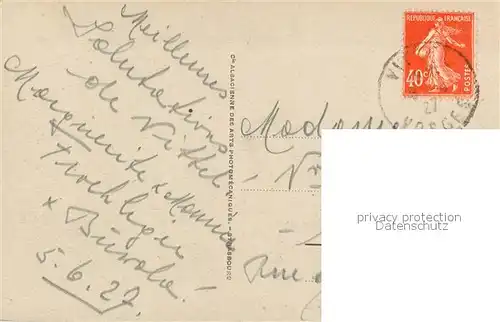 Meilleures
Salutations
de Vittel
Marguerite &
&
5.6.27.
Cie ALSACIENNE DES ARTS PHOTOMÉCANIQUES. - STRASBOURG
REPUBLIQUE FRANÇAISE
40c
POSTES
27
VOSGES
Madame
Rue
privacy protection
Datenschutz